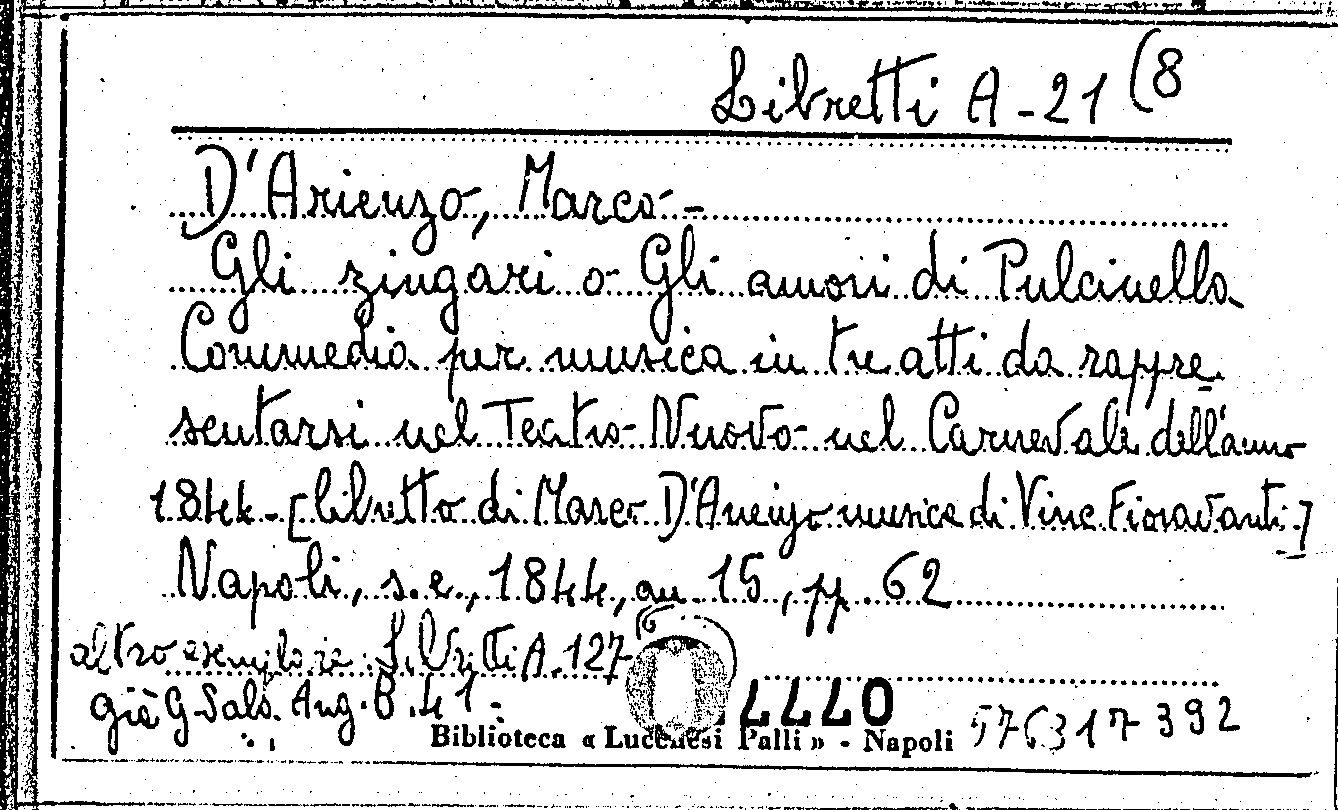 Libretti A-21 (8
D'Arienzo, Marco -
Gli zingari o Gli amori di Pulcinella
Commedia per musica in tre atti da rappre
sentarsi nel Teatro Nuovo nel Carnevale dell'anno
1844 - [libretto di Marco D'Arienzo musica di Vinc. Fioravanti.]
Napoli, s.e., 1844, au. 15, pp. 62
altro esemplare: Libretti A. 127 (6
già G. Sala. Aug. B. 41.
4440
Biblioteca « Lucchesi Palli » - Napoli 576317392